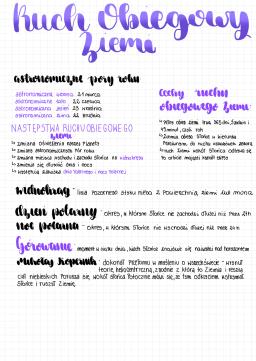 Ruch Obiegowy
Ziemi
astronomiczne pory roku
astronomiczna wiosna 21 marca
astronomiczne lato 22 czerwca
astronomiczna jesień 23 września
astronomiczna zima 22 grudnia
NASTĘPSTWA RUCHU OBIEGOWEGO
Ziemi
↳ zmiana oświetlenia naszej Planety
↳ zmiana astronomicznych Pór roku
↳ zmiana miejsca wschodu i zachodu Słońca na widnokręgu
↳ zmienia się długość dnia i nocy
↳ występują zjawiska dnia Polarnego i nocy Polarnej
Cechy ruchu
obiegowego Ziemi:
↳ Pełny obieg Ziemi trwa 365 dni, 5 godzin i
49 minut, czyli rok
↳ Ziemia obiega Słońce w kierunku
↳ ruch Ziemi wokół Słońca odbywa się
Po orbicie mającej kształt elipsy
widnokrąg: linia Pozornego styku nieba z Powierzchnią Ziemi lub morza
dzień polarny: okres, w którym Słońce nie zachodzi dłużej niż Przez 24h
noc polarna: okres, w którym Słońce nie wschodzi dłużej niż Przez 24h
Górowanie: moment w ciągu dnia, kiedy Słońce znajduje się najwyżej nad horyzontem
Mikołaj Kopernik: dokonał Przełomu w myśleniu o wszechświecie - wysnuł
teorię heliocentryczną, zgodnie z którą to Ziemia i reszta
ciał niebieskich Porusza się wokół Słońca. Potocznie mówi się, że tym odkryciem wstrzymał
Słońce i ruszył Ziemię.